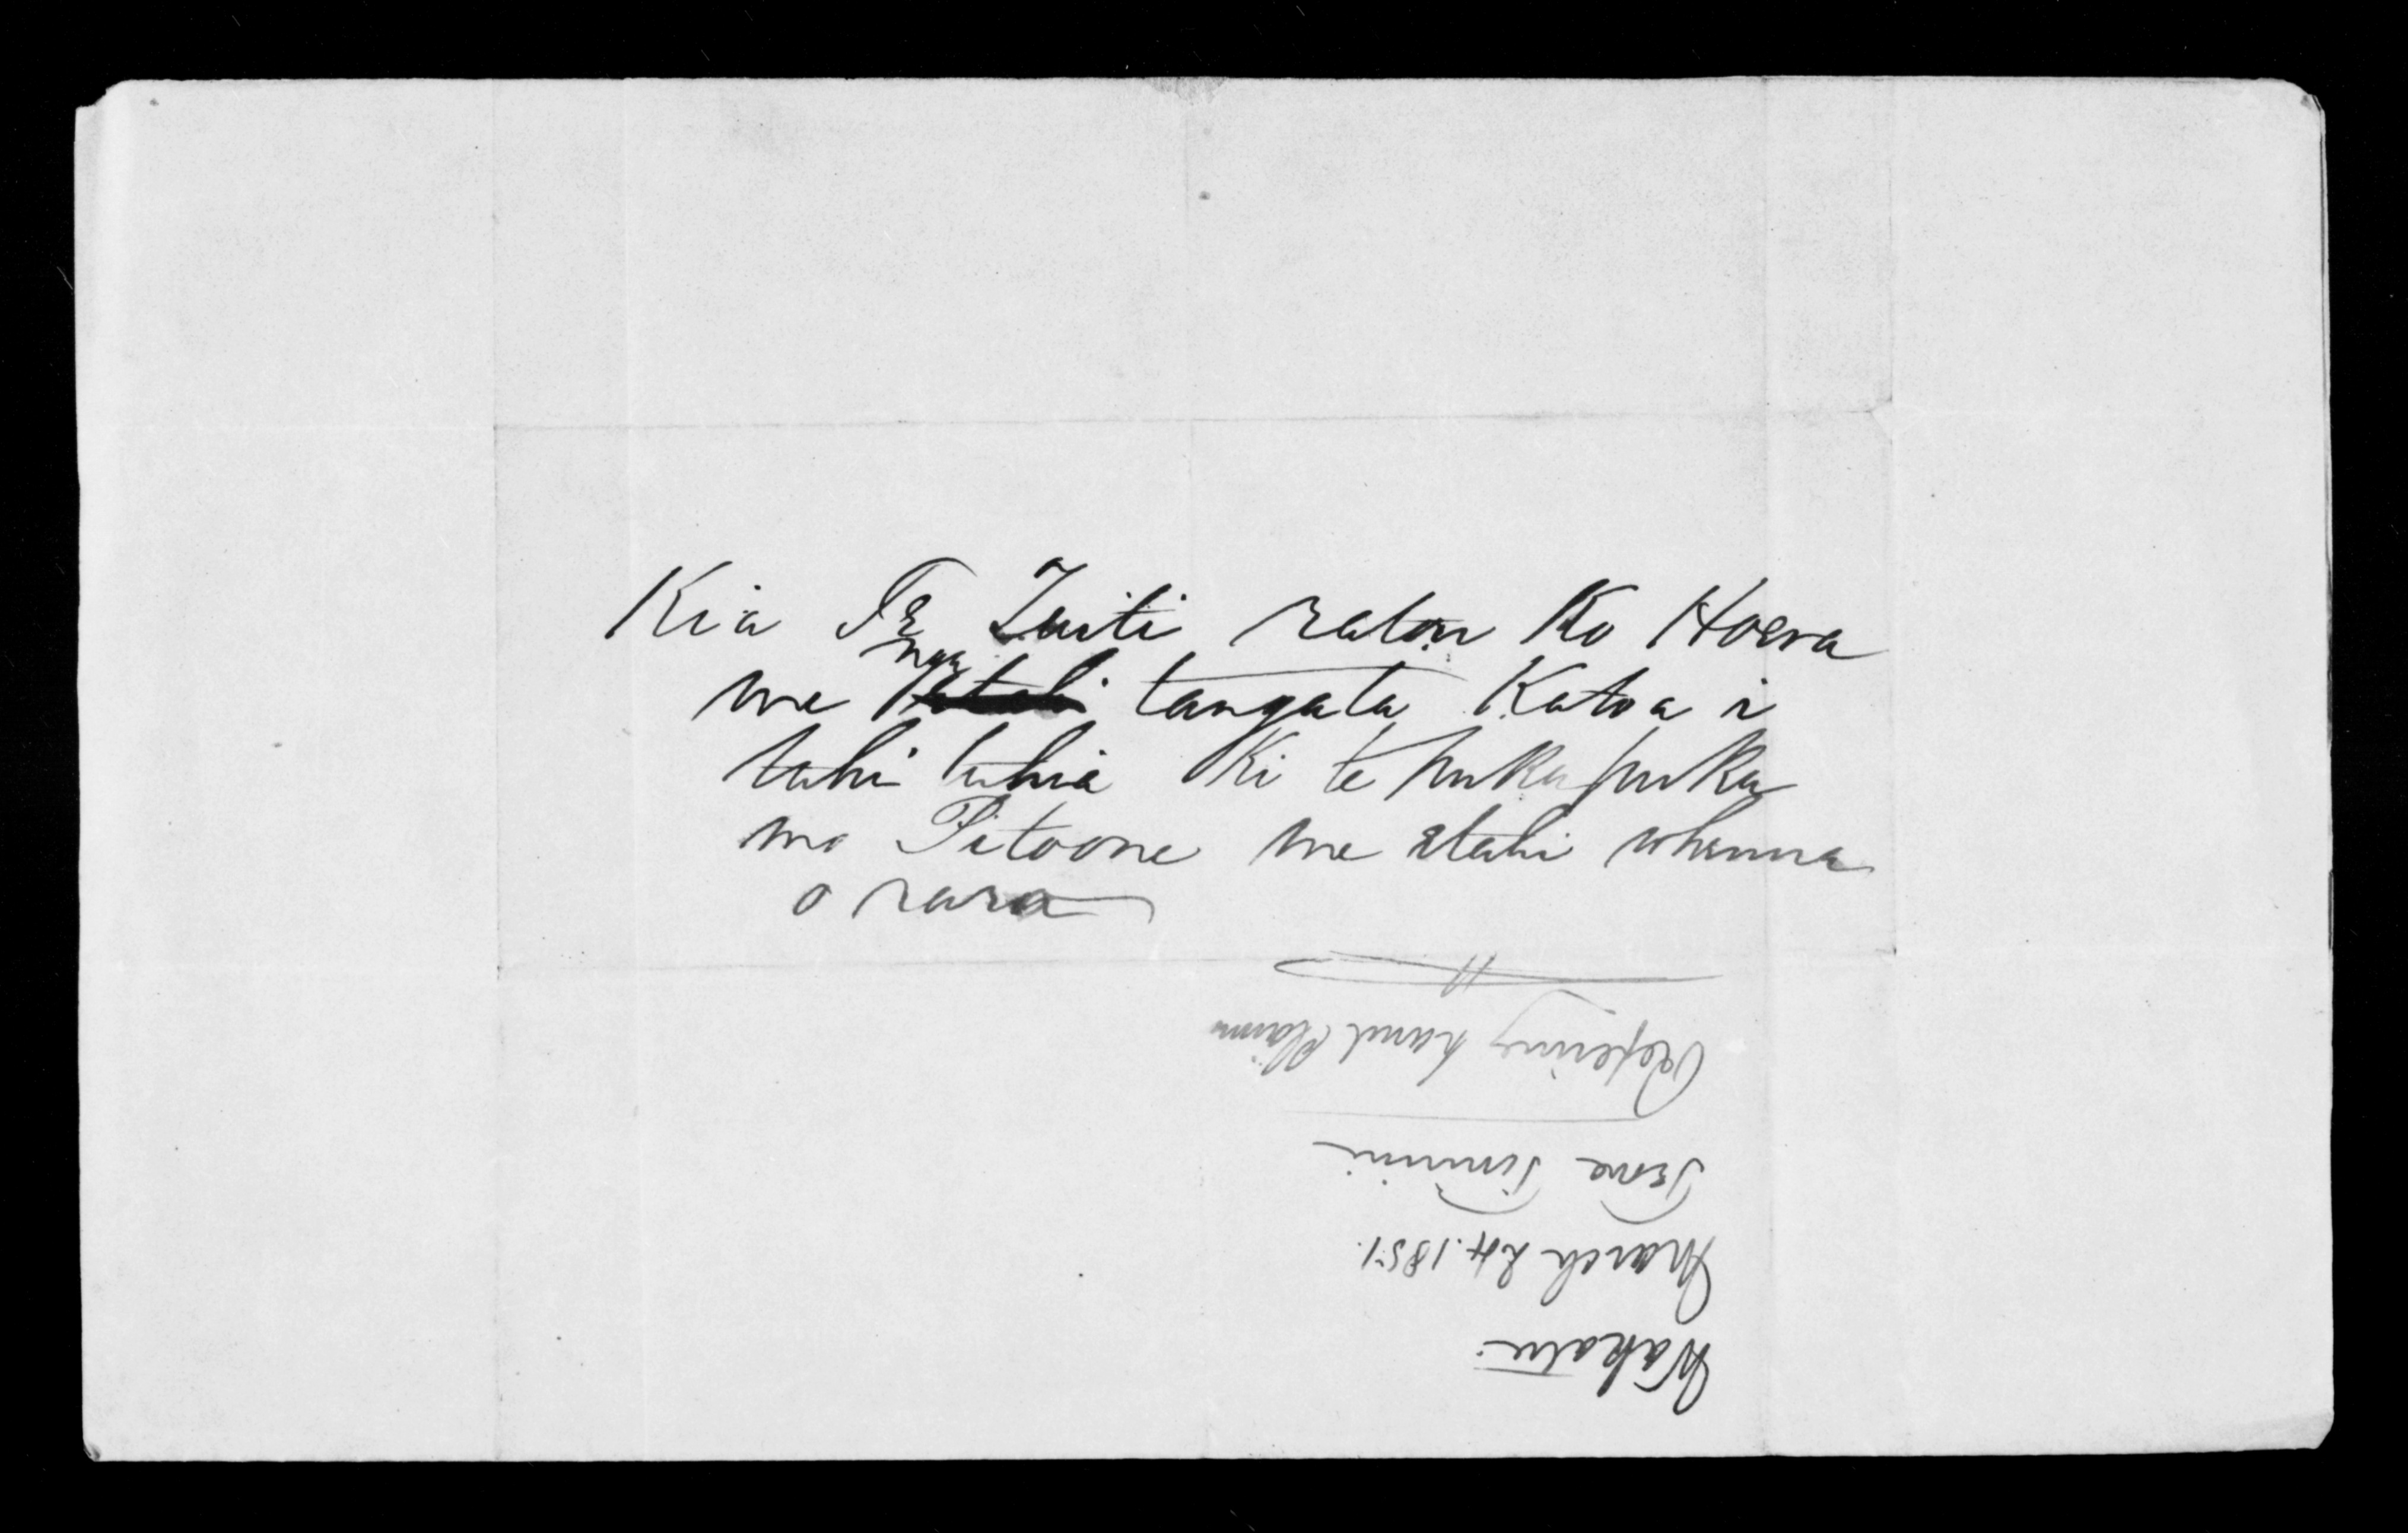 Kia Te Tuiti ratou Ko Hoera
me nga etahi tangata Katoa i
tuhi tuhia Ki te pukapuka
mo Pitoone me etahi whenua
o rara
Wakatu
March 24. 1851.
Tene Timini
Refering Land Claims